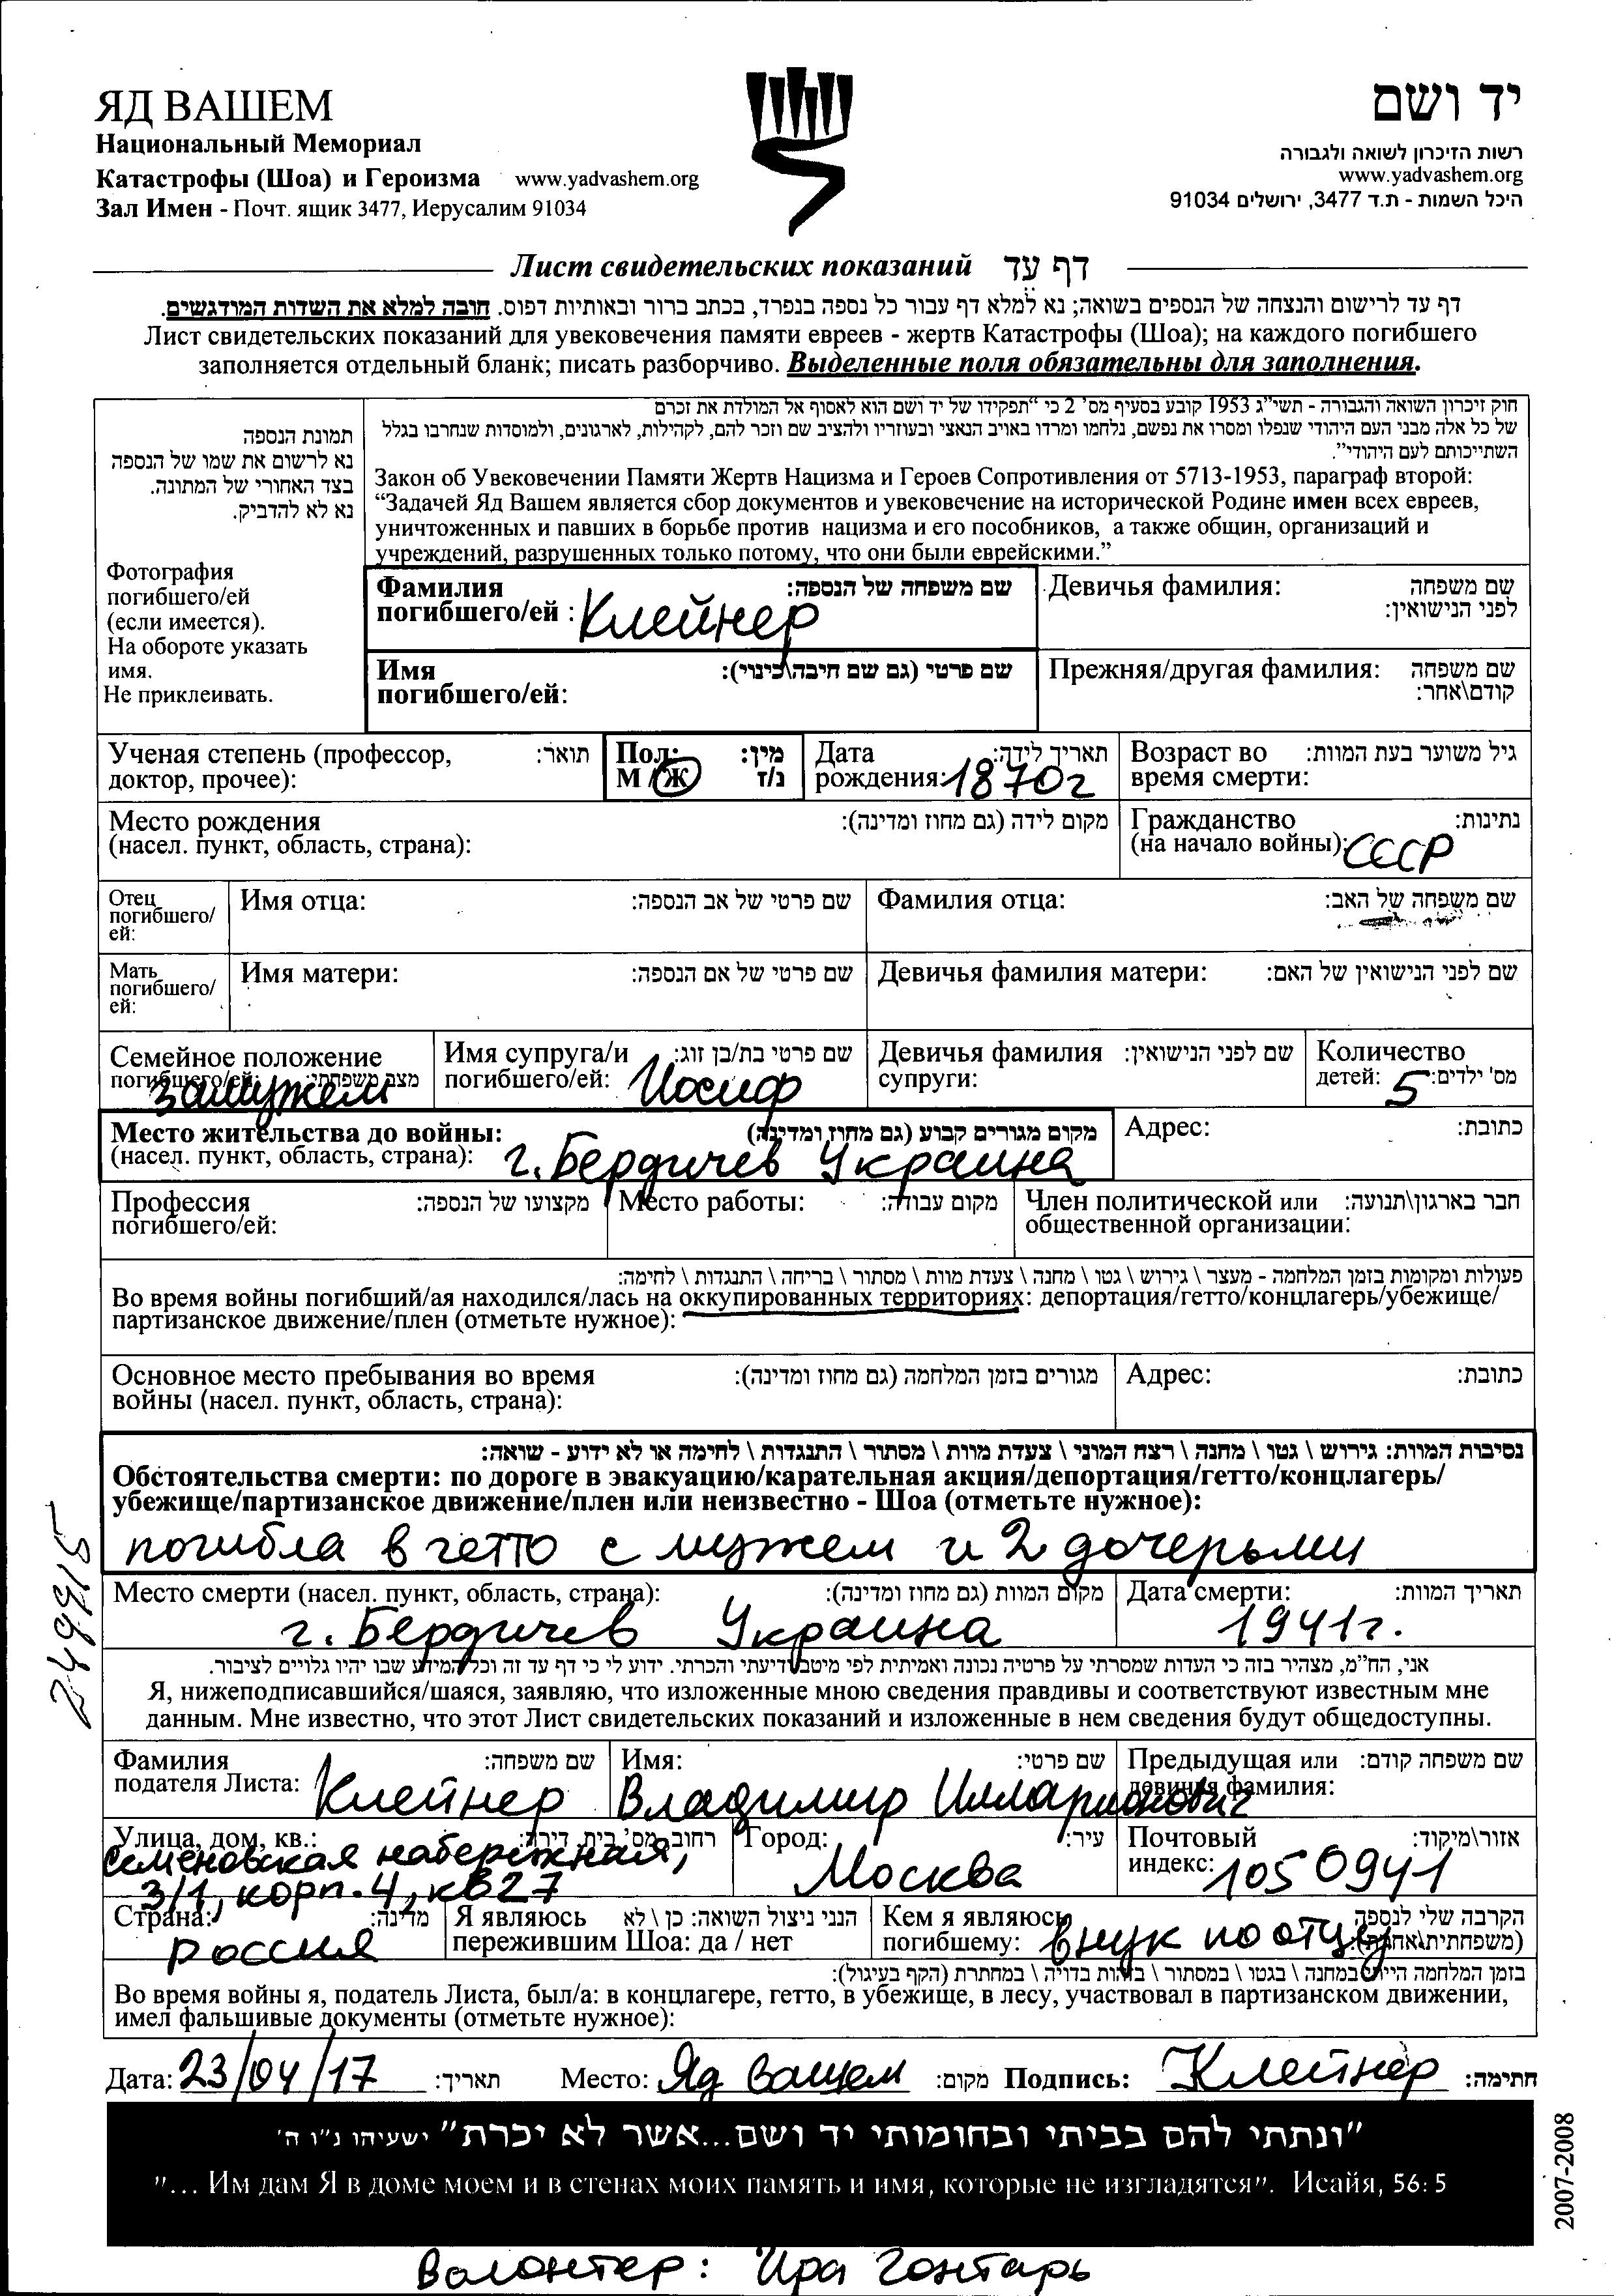 ЯД ВАШЕМ
Национальный Мемориал
Катастрофы (Шоа) и Героизма www.yadvashem.org
Зал Имен - Почт. ящик 3477, Иерусалим 91034
יד ושם
רשות הזיכרון לשואה ולגבורה
www.yadvashem.org
היכל השמות - ת.ד 3477, ירושלים 91034
Лист свидетельских показаний דף עֵד
דף עד לרישום והנצחה של הנספים בשואה; נא למלא דף עבור כל נספה בנפרד, בכתב ברור ובאותיות דפוס. חובה למלא את השדות המודגשים.
Лист свидетельских показаний для увековечения памяти евреев - жертв Катастрофы (Шоа); на каждого погибшего
заполняется отдельный бланк; писать разборчиво. Выделенные поля обязательны для заполнения.
תמונת הנספה
נא לרשום את שמו של הנספה
בצד האחורי של המתונה.
נא לא להדביק.
Фотография
погибшего/ей
(если имеется).
На обороте указать
имя.
Не приклеивать.
חוק זיכרון השואה והגבורה - תשי"ג 1953 קובע בסעיף מס' 2 כי "תפקידו של יד ושם הוא לאסוף אל המולדת את זכרם
של כל אלה מבני העם היהודי שנפלו ומסרו את נפשם, נלחמו ומרדו באויב הנאצי ובעוזריו ולהציב שם וזכר להם, לקהילות, לארגונים, ולמוסדות שנחרבו בגלל
השתייכותם לעם היהודי".
Закон об Увековечении Памяти Жертв Нацизма и Героев Сопротивления от 5713-1953, параграф второй:
"Задачей Яд Вашем является сбор документов и увековечение на исторической Родине имен всех евреев,
уничтоженных и павших в борьбе против нацизма и его пособников, а также общин, организаций и
учреждений, разрушенных только потому, что они были еврейскими."
Фамилия שם משפחה של הנספה:
погибшего/ей : Клейнер
Девичья фамилия: שם משפחה
לפני הנישואין:
Имя שם פרטי (גם שם חיבה\כינוי):
погибшего/ей:
Прежняя/другая фамилия: שם משפחה
קודם\אחר:
Ученая степень (профессор, תואר:
доктор, прочее):
Пол: מין:
М / Ж נ/ז
Дата תאריך לידה:
рождения: 1870г
Возраст во גיל משוער בעת המוות:
время смерти:
Место рождения מקום לידה (גם מחוז ומדינה):
(насел. пункт, область, страна):
Гражданство נתינות:
(на начало войны): СССР
Отец
погибшего/
ей:
Имя отца: שם פרטי של אב הנספה:
Фамилия отца: שם משפחה של האב:
Мать
погибшего/
ей:
Имя матери: שם פרטי של אם הנספה:
Девичья фамилия матери: שם לפני הנישואין של האם:
Семейное положение
погибшего/ей: מצב משפחתי:
замужем
Имя супруга/и שם פרטי בת/בן זוג:
погибшего/ей: Иосиф
Девичья фамилия שם לפני הנישואין:
супруги:
Количество
детей: 5 מס' ילדים:
Место жительства до войны: מקום מגורים קבוע (גם מחוז ומדינה)
(насел. пункт, область, страна): г. Бердичев Украина
Адрес: כתובת:
Профессия מקצועו של הנספה:
погибшего/ей:
Место работы: מקום עבודה:
Член политической или חבר בארגון\תנועה:
общественной организации:
פעולות ומקומות בזמן המלחמה - מעצר \ גירוש \ גטו \ מחנה \ צעדת מוות \ מסתור \ בריחה \ התנגדות \ לחימה:
Во время войны погибший/ая находился/лась на оккупированных территориях: депортация/гетто/концлагерь/убежище/
партизанское движение/плен (отметьте нужное):
Основное место пребывания во время מגורים בזמן המלחמה (גם מחוז ומדינה):
войны (насел. пункт, область, страна):
Адрес: כתובת:
נסיבות המוות: גירוש \ גטו \ מחנה \ רצח המוני \ צעדת מוות \ מסתור \ התנגדות \ לחימה או לא ידוע - שואה:
Обстоятельства смерти: по дороге в эвакуацию/карательная акция/депортация/гетто/концлагерь/
убежище/партизанское движение/плен или неизвестно - Шоа (отметьте нужное):
погибла в гетто с мужем и 2 дочерьми
Место смерти (насел. пункт, область, страна): מקום המוות (גם מחוז ומדינה):
г. Бердичев Украина
Дата смерти: תאריך המוות:
1941г.
אני, הח"מ, מצהיר בזה כי העדות שמסרתי על פרטיה נכונה ואמיתית לפי מיטב ידיעתי והכרתי. ידוע לי כי דף עד זה וכל המידע שבו יהיו גלויים לציבור.
Я, нижеподписавшийся/шаяся, заявляю, что изложенные мною сведения правдивы и соответствуют известным мне
данным. Мне известно, что этот Лист свидетельских показаний и изложенные в нем сведения будут общедоступны.
Фамилия שם משפחה:
подателя Листа: Клейнер
Имя: שם פרטי:
Владимир Илларионович
Предыдущая или שם משפחה קודם:
девичья фамилия:
Улица, дом, кв.: רחוב, מס' בית, דירה:
Семеновская набережная,
3/1, корп. 4, кв27
Город: עיר:
Москва
Почтовый אזור\מיקוד:
индекс: 1050941
Страна: מדינה:
Россия
Я являюсь הנני ניצול השואה: כן \ לא
пережившим Шоа: да / нет
Кем я являюсь הקרבה שלי לנספה
погибшему: внук по отцу (משפחתית\אחרת):
בזמן המלחמה הייתי במחנה \ בגטו \ במסתור \ בזהות בדויה \ במחתרת (הקף בעיגול):
Во время войны я, податель Листа, был/а: в концлагере, гетто, в убежище, в лесу, участвовал в партизанском движении,
имел фальшивые документы (отметьте нужное):
Дата: 23/04/17 תאריך: Место: Яд Вашем מקום: Подпись: Клейнер חתימה:
"ונתתי להם בביתי ובחומותי יד ושם...אשר לא יכרת" ישעיהו נ"ו ה'
"... Им дам Я в доме моем и в стенах моих память и имя, которые не изгладятся". Исайя, 56: 5
2007-2008
Волонтер: Ира Гонтарь